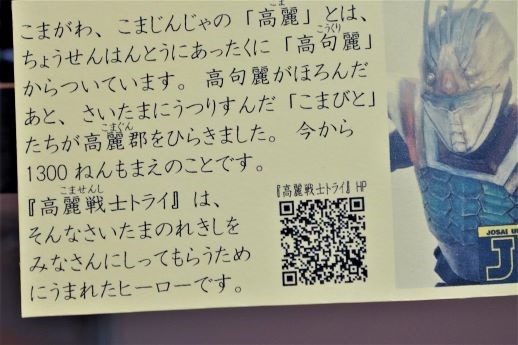 こまがわ、こまじんじゃの「高麗」とは、
ちょうせんはんとうにあったくに「高句麗」
からついています。高句麗がほろんだ
あと、さいたまにうつりすんだ「こまびと」
たちが高麗郡をひらきました。今から
1300ねんもまえのことです。
『高麗戦士トライ』は、
そんなさいたまのれきしを
みなさんにしってもらうため
にうまれたヒーローです。
『高麗戦士トライ』HP
JOSAI U
J